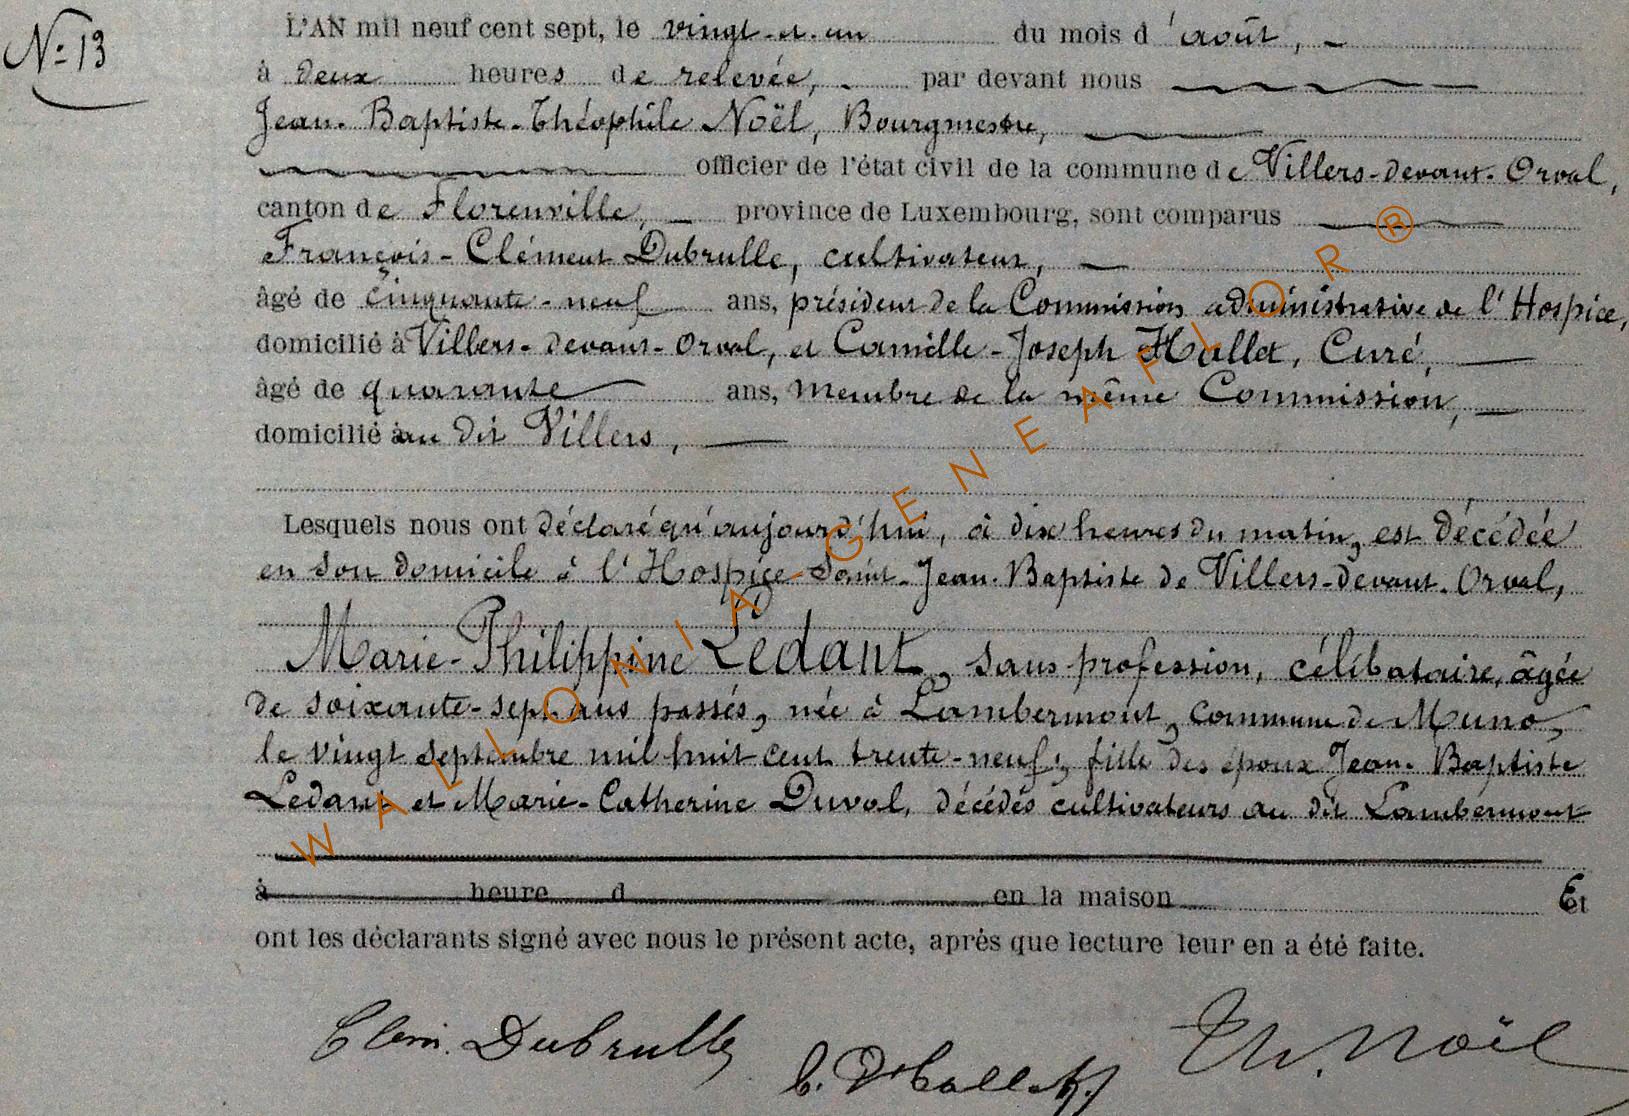 N° 13
L'AN mil neuf cent sept, le vingt-et-un du mois d'août,
à deux heures de relevée, par devant nous
Jean-Baptiste-Théophile Noël, Bourgmestre,
officier de l'état civil de la commune de Villers-devant-Orval,
canton de Florenville, province de Luxembourg, sont comparus
François-Clément Dubrulle, cultivateur,
âgé de cinquante-neuf ans, président de la Commission administrative de l'Hospice,
domicilié à Villers-devant-Orval, et Camille-Joseph Hallet, Curé,
âgé de quarante ans, membre de la même Commission,
domicilié au dit Villers,
Lesquels nous ont déclaré qu'aujourd'hui, à dix heures du matin, est décédée
en son domicile à l'Hospice Saint-Jean-Baptiste de Villers-devant-Orval,
Marie-Philippine Ledant, sans profession, célibataire, âgée
de soixante-sept ans passés, née à Lambermont, commune de Muno,
le vingt septembre mil huit cent trente-neuf, fille des époux Jean-Baptiste
Ledant et Marie-Catherine Duval, décédés cultivateurs au dit Lambermont
à heure d en la maison Et
ont les déclarants signé avec nous le présent acte, après que lecture leur en a été faite.
Clém. Dubrulle
Th. Noël
WALLONIA-GENEAFLOR®